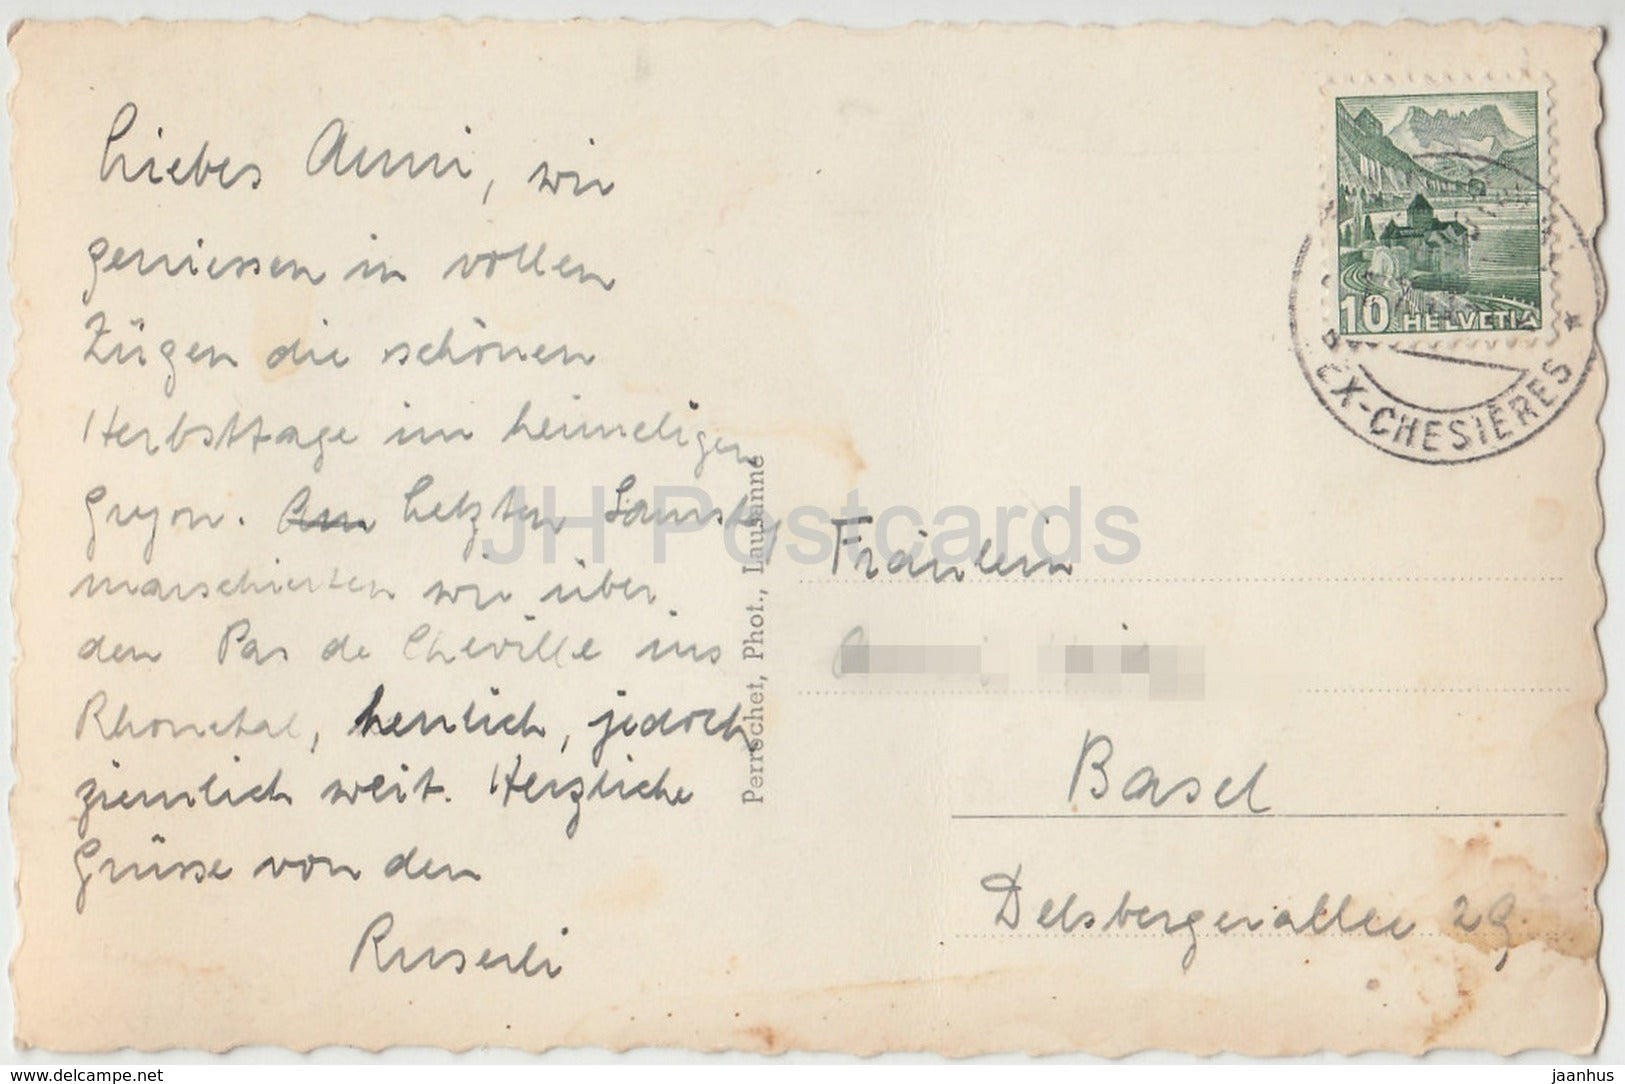 Liebes Anni, wir
geniessen in vollen
Zügen die schönen
Herbsttage im heimeligen
Gryon. Am letzten Samst.
marschierten wir über
den Pas de Cheville ins
Rhonetal, herrlich, jedoch
ziemlich weit. Herzliche
Grüsse von den
Ruserli
Perrochet, Phot., Lausanne
10 HELVETIA
EX-CHESIÈRES
JH Postcards
Fräulein
Basel
Delsbergerallee 29.
www.delcampe.net
jaanhus